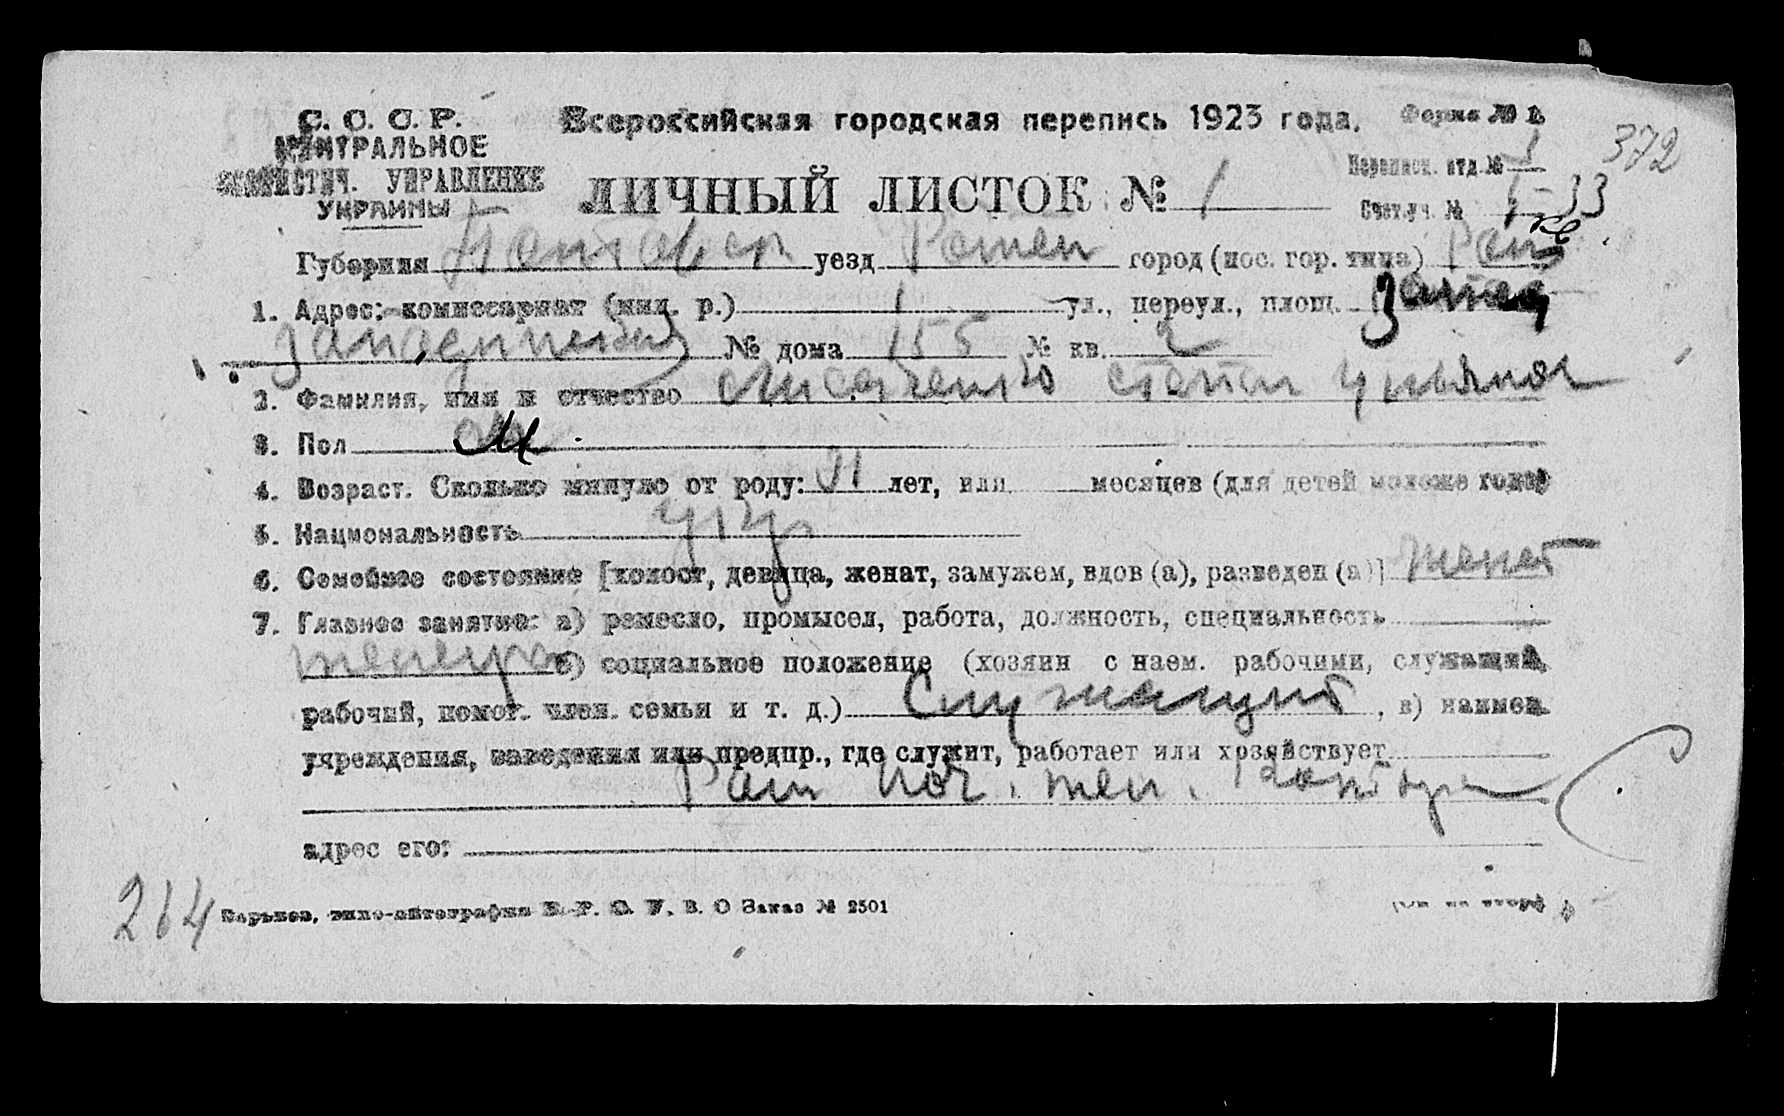 С. С. С. Р. Всероссийская городская перепись 1923 года. Форма № 1.
ЦЕНТРАЛЬНОЕ
СТАТИСТИЧ. УПРАВЛЕНИЕ
УКРАИНЫ
Переписн. отд. № 1 372
ЛИЧНЫЙ ЛИСТОК № 1
Счет.уч. № 1-33
Губерния Полтавск уезд Ромен город (пос. гор. типа) Ром
1. Адрес: комиссариат (мил. р.) 1 ул., переул., площ.
№ дома 155 № кв. 2
2. Фамилия, имя и отчество Степан
3. Пол М
4. Возраст. Сколько минуло от роду: 31 лет, или месяцев (для детей моложе года)
5. Национальность укр
6. Семейное состояние [холост, девица, женат, замужем, вдов (а), разведен (а)] женат
7. Главное занятие: а) ремесло, промысел, работа, должность, специальность
б) социальное положение (хозяин с наем. рабочими, служащий,
рабочий, помог. член. семьи и т. д.) Служащий, в) наимен.
учреждения, заведения или предпр., где служит, работает или хозяйствует
Ром поч. тел. Контора
адрес его:
264 Харьков, типо-литография В. У. З. Заказ № 2501